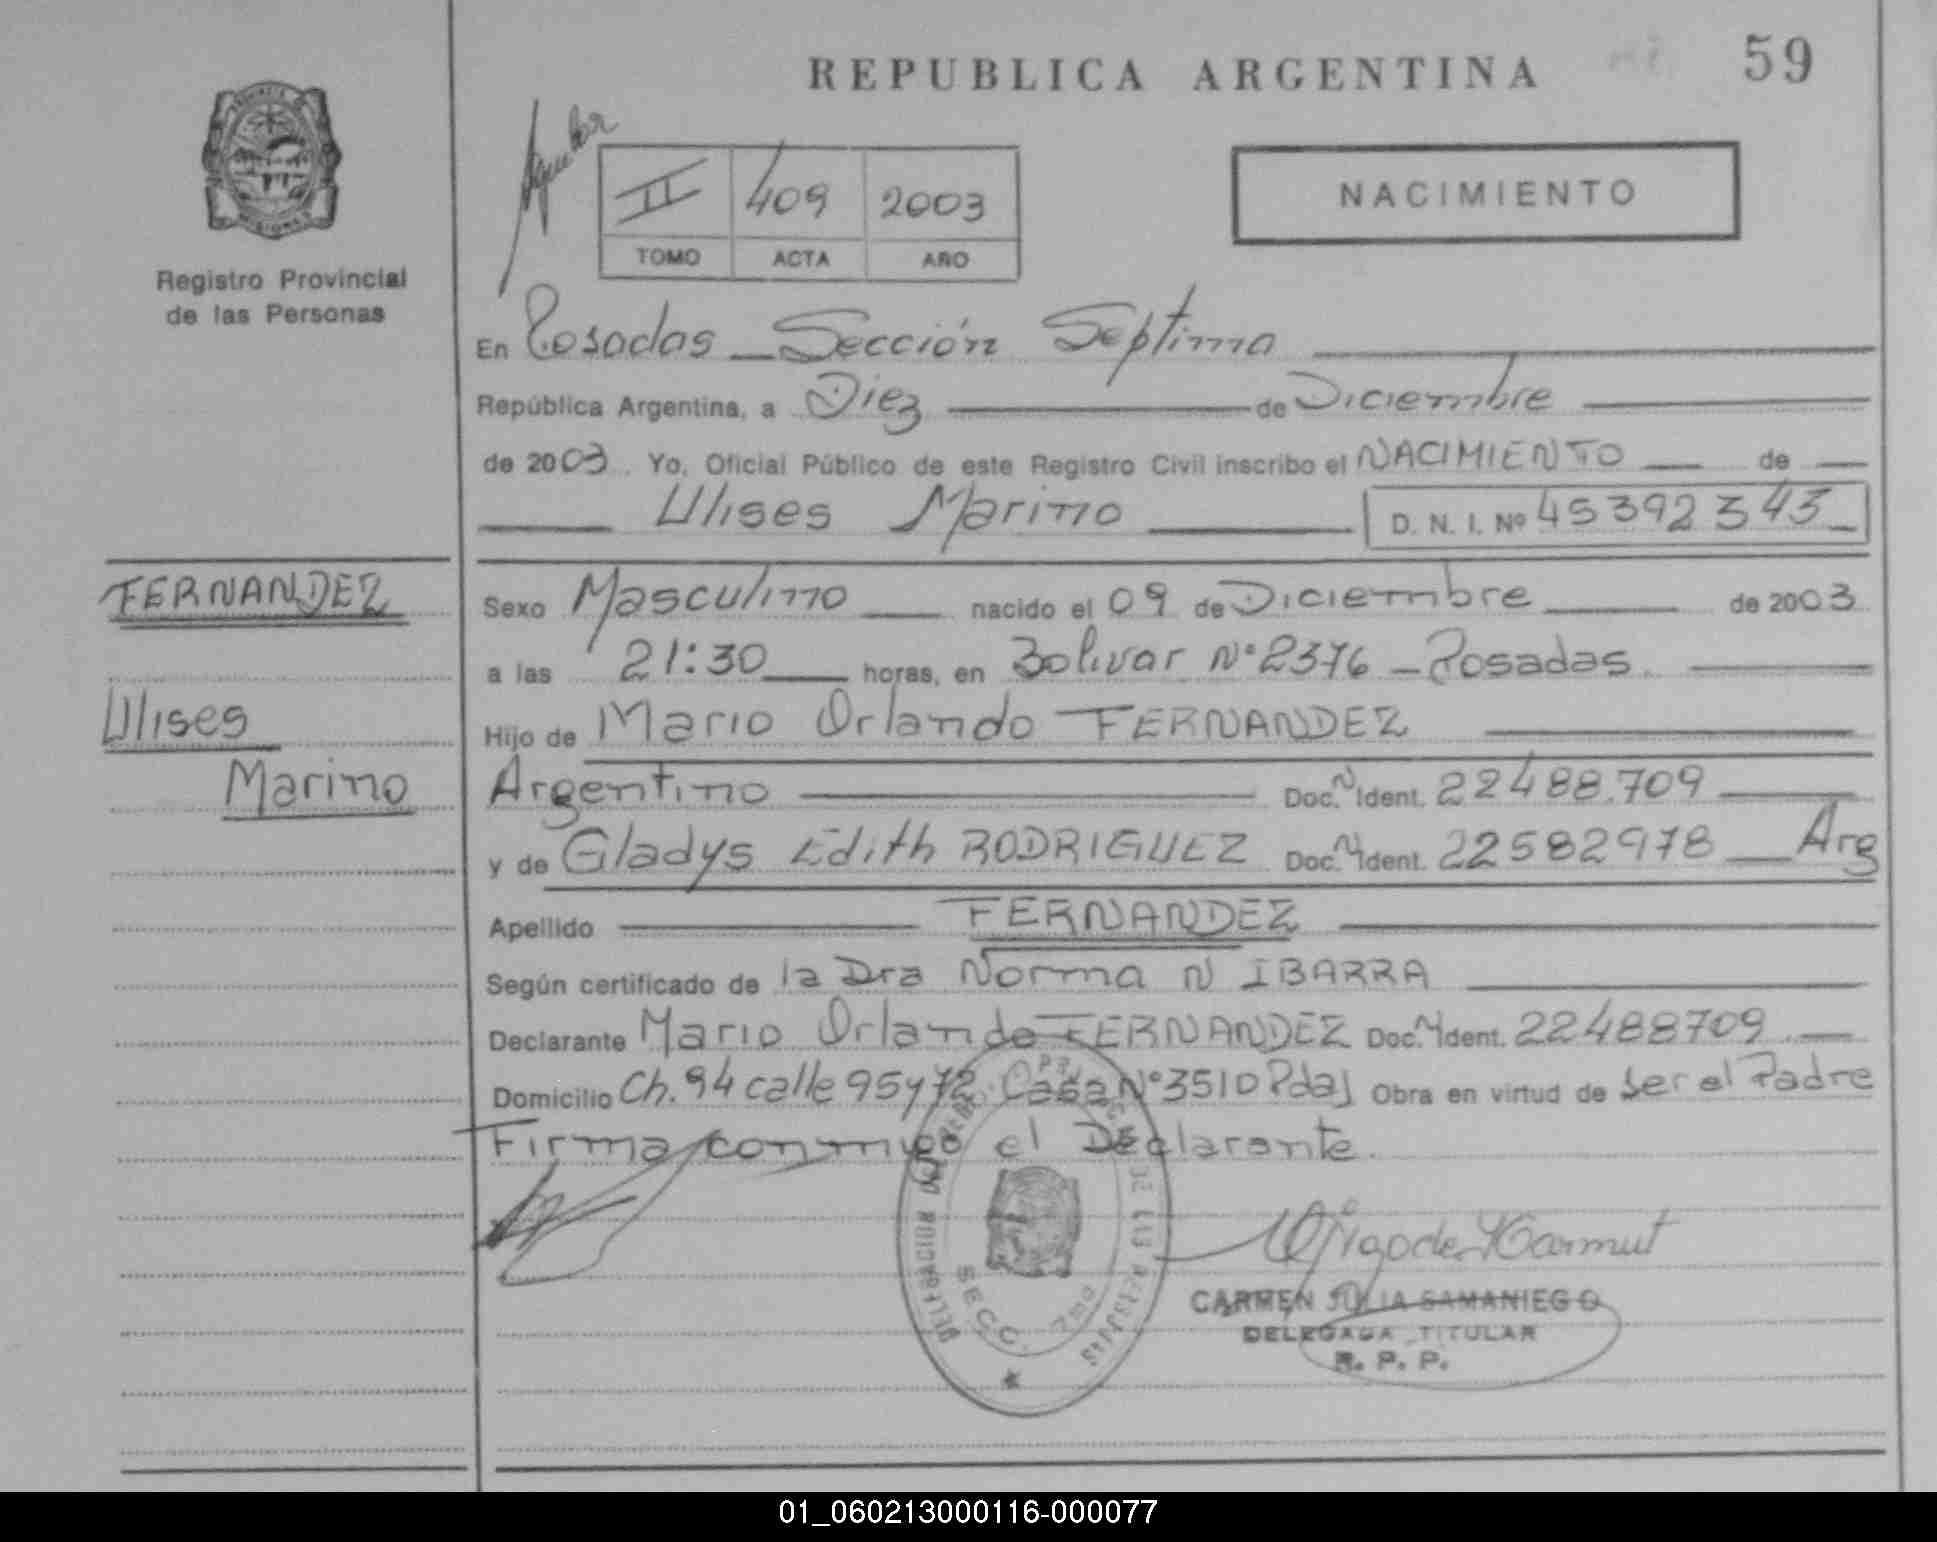 REPUBLICA ARGENTINA
59
Registro Provincial
de las Personas
II 409 2003
TOMO ACTA AÑO
NACIMIENTO
En Posadas Sección Septima
República Argentina, a Diez de Diciembre
de 2003. Yo, Oficial Público de este Registro Civil inscribo el NACIMIENTO de
Ulises Marino D. N. I. Nº 45392343
FERNANDEZ
Ulises
Marino
Sexo Masculino nacido el 09 de Diciembre de 2003
a las 21:30 horas, en Bolivar Nº 2376 - Posadas.
Hijo de Mario Orlando FERNANDEZ
Argentino Doc. N Ident. 22488.709
y de Gladys Edith RODRIGUEZ Doc. N Ident. 22582978 Arg
Apellido FERNANDEZ
Según certificado de la Dra Norma N IBARRA
Declarante Mario Orlando FERNANDEZ Doc. N Ident. 22488709
Domicilio Ch. 94 calle 95 y 72 Casa Nº 3510 Pdas Obra en virtud de ser el Padre
Firma conmigo el Declarante.
SECC. 7ma
CARMEN JULIA SAMANIEGO
DELEGADA TITULAR
R. P. P.
01_060213000116-000077